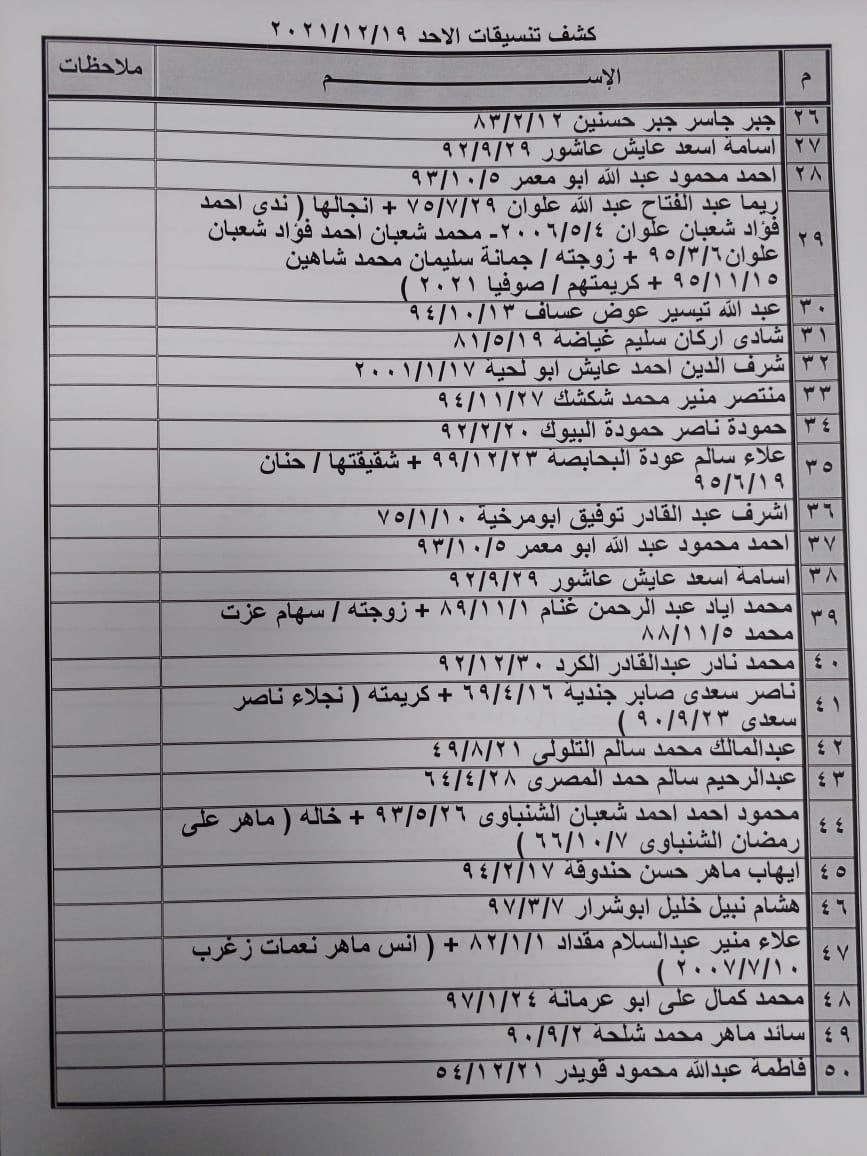 كشف تنسيقات الاحد ٢٠٢١/١٢/١٩
م الإســـــــم ملاحظات
٢٦ جبر جاسر جبر حسنين ٨٣/٢/١٢
٢٧ اسامة اسعد عايش عاشور ٩٢/٩/٢٩
٢٨ احمد محمود عبد الله ابو معمر ٩٣/١٠/٥
٢٩ ريما عبد الفتاح عبد الله علوان ٧٥/٧/٢٩ + انجالها ( ندى احمد
فؤاد شعبان علوان ٢٠٠٦/٥/٤- محمد شعبان احمد فؤاد شعبان
علوان ٩٥/٣/٦ + زوجته / جمانة سليمان محمد شاهين
٩٥/١١/١٥ + كريمتهم / صوفيا ٢٠٢١ )
٣٠ عبد الله تيسير عوض عساف ٩٤/١٠/١٣
٣١ شادى اركان سليم غياضة ٨١/٥/١٩
٣٢ شرف الدين احمد عايش ابو لحية ٢٠٠١/١/١٧
٣٣ منتصر منير محمد شكشك ٩٤/١١/٢٧
٣٤ حمودة ناصر حمودة البيوك ٩٢/٢/٢٠
٣٥ علاء سالم عودة البحابصة ٩٩/١٢/٢٣ + شقيقتها / حنان
٩٥/٦/١٩
٣٦ اشرف عبد القادر توفيق ابومرخية ٧٥/١/١٠
٣٧ احمد محمود عبد الله ابو معمر ٩٣/١٠/٥
٣٨ اسامة اسعد عايش عاشور ٩٢/٩/٢٩
٣٩ محمد اياد عبد الرحمن غنام ٨٩/١١/١ + زوجته / سهام عزت
محمد ٨٨/١١/٥
٤٠ محمد نادر عبدالقادر الكرد ٩٢/١٢/٣٠
٤١ ناصر سعدى صابر جندية ٦٩/٤/١٦ + كريمته ( نجلاء ناصر
سعدى ٩٠/٩/٢٣ )
٤٢ عبدالمالك محمد سالم التلولى ٤٩/٨/٢١
٤٣ عبدالرحيم سالم حمد المصرى ٦٤/٤/٢٨
٤٤ محمود احمد احمد شعبان الشنباوى ٩٣/٥/٢٦ + خاله ( ماهر على
رمضان الشنباوى ٦٦/١٠/٧ )
٤٥ ايهاب ماهر حسن حندوقة ٩٤/٢/١٧
٤٦ هشام نبيل خليل ابوشرار ٩٧/٣/٧
٤٧ علاء منير عبدالسلام مقداد ٨٢/١/١ + ( انس ماهر نعمات زغرب
٢٠٠٧/٧/١٠ )
٤٨ محمد كمال على ابو عرمانة ٩٧/١/٢٤
٤٩ سائد ماهر محمد شلحة ٩٠/٩/٢
٥٠ فاطمة عبدالله محمود قويدر ٥٤/١٢/٢١